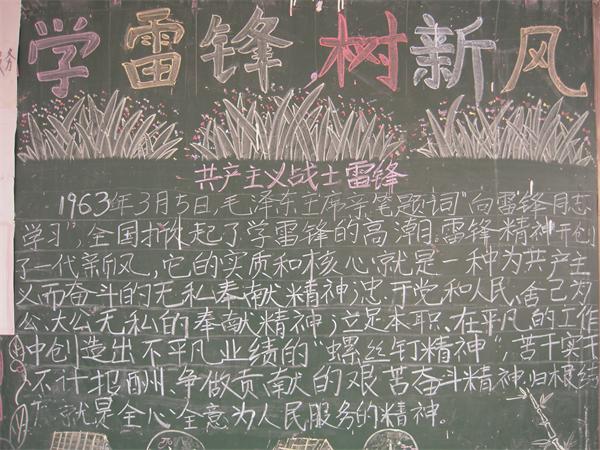 学雷锋树新风
共产主义战士雷锋
1963年3月5日,毛泽东主席亲笔题词"向雷锋同志
学习",全国掀起了学雷锋的高潮。雷锋精神开创
了一代新风,它的实质和核心就是一种为共产主
义而奋斗的无私奉献精神;忠于党和人民、舍己为
公、大公无私的奉献精神;立足本职、在平凡的工作
中创造出不平凡业绩的"螺丝钉精神",苦干实干
不计报酬,争做贡献的艰苦奋斗精神,归根结
就是全心全意为人民服务的精神。
务